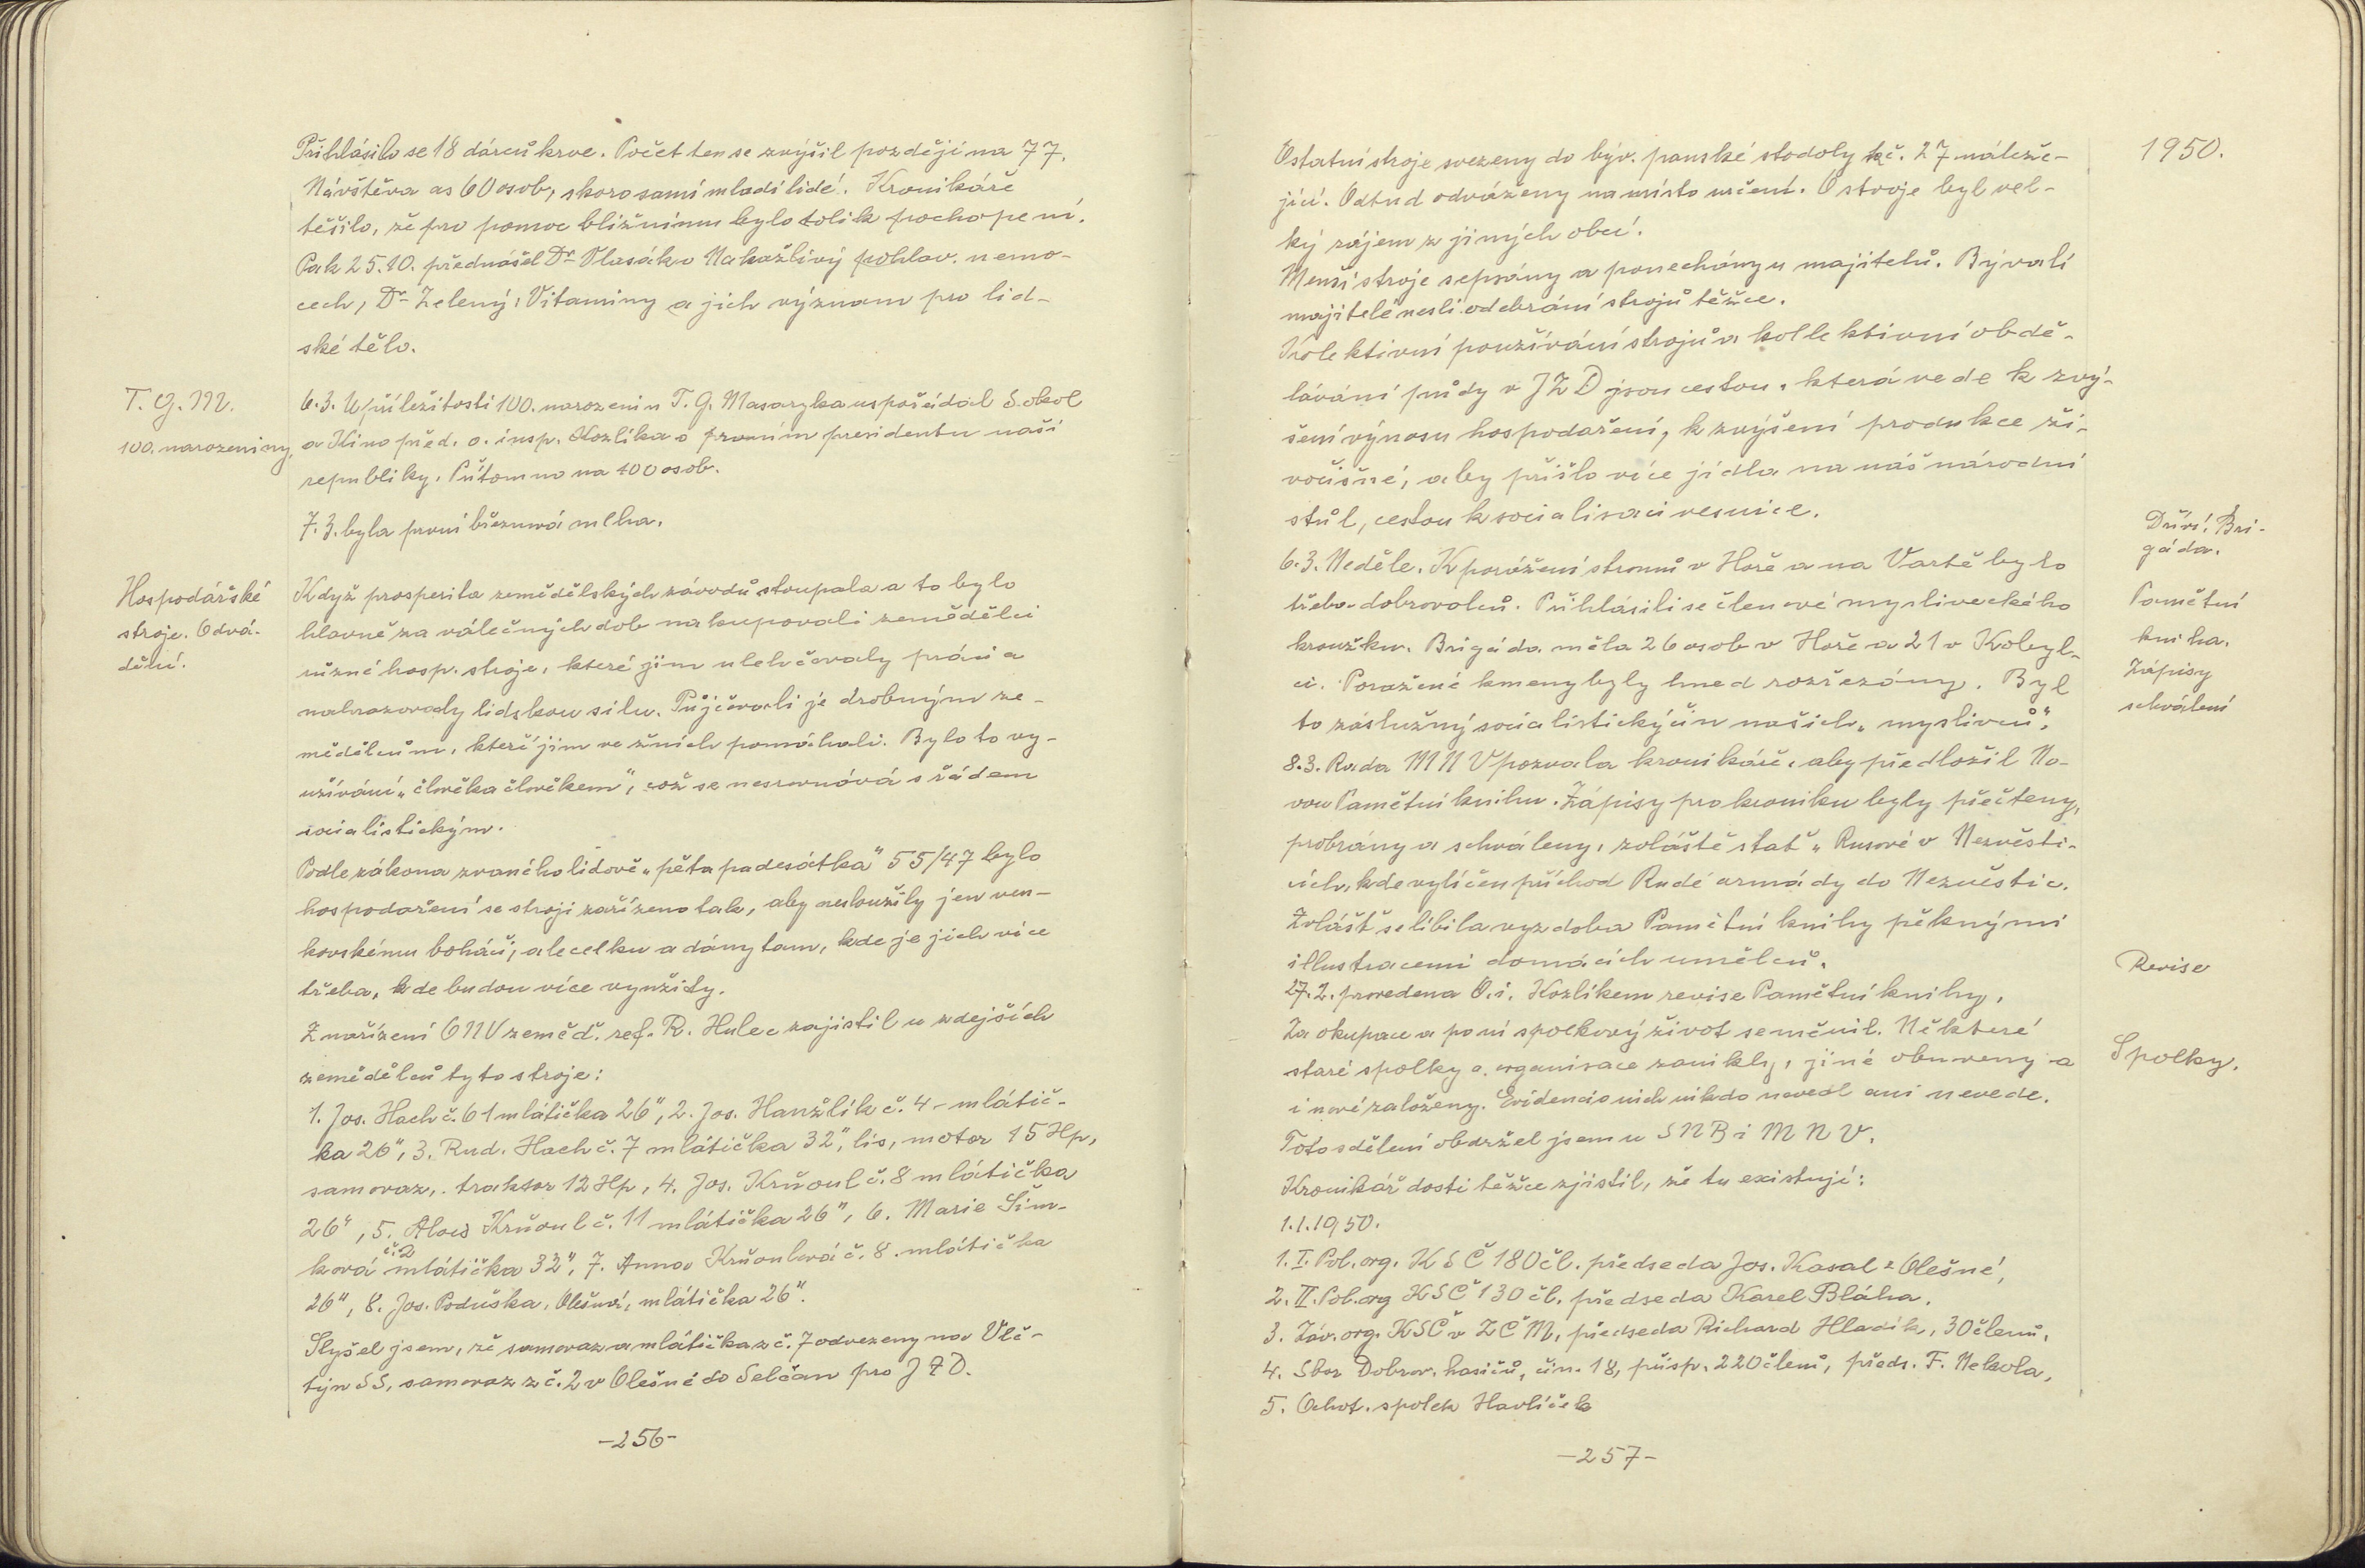 Přihlásilo se 18 dárců krve. Počet ten se zvýšil později na 77.
Návštěva as 60 osob, skoro samí mladí lidé. Kronikáře
těšilo, že pro pomoc bližnímu bylo tolik pochopení.
Pak 25.10. přednášel Dr Vlasák o Nakažlivý pohlav. nemo-
cech, Dr Zelený, Vitaminy a jich význam pro lid-
ské tělo.
T. G. M.
100. narozeniny.
6.3. U příležitosti 100. narozenin T. G. Masaryka uspořádal Sokol
a Kino před. o. insp. Kozlíka o prvním presidentu naší
republiky. Přítomno na 100 osob.
7.3. byla první březnová mlha.
Hospodářské
stroje. Odvá-
dění.
Když prosperita zemědělských závodů stoupala a to bylo
hlavně za válečných dob nakupovali zemědělci
různé hosp. stroje, které jim ulehčovaly práci a
nahrazovaly lidskou silu. Půjčovali je drobným ze-
mědělcům, kteří jim ve žních pomáhali. Bylo to vy-
užívání „člověka člověkem", což se nesrovnává s řádem
socialistickým.
Podle zákona zvaného lidově „pětapadesátka" 55/47 bylo
hospodaření se stroji zařízeno tak, aby nesloužily jen ven-
kovskému boháči, ale celku a dány tam, kde je jich více
třeba, kde budou více využity.
Z nařízení ONV zeměd. ref. R. Hulec zajistil u zdejších
zemědělců tyto stroje:
1. Jos. Hach č. 61 mlátička 26", 2. Jos. Hanžlík č. 4 - mlátič-
ka 26", 3. Rud. Hach č. 7 mlátička 32", lis, motor 15 Hp,
samovaz, traktor 12 Hp, 4. Jos. Krňoul č. 8 mlátička
26", 5. Alois Krňoul č. 11 mlátička 26", 6. Marie Šim-
ková č. 2 mlátička 32", 7. Anna Krňoulová č. 8. mlátička
26", 8. Jos. Poduška, Olešná, mlátička 26".
Slyšel jsem, že samovaz a mlátička z č. 7 odvezeny na Vlč-
týn SS, samovaz z č. 2 v Olešné do Selčan pro JZD.
-256-
1950.
Ostatní stroje svezeny do býv. panské stodoly k č. 27 náleže-
jící. Odtud odváženy na místo určení. O stroje byl vel-
ký zájem z jiných obcí.
Menší stroje sepsány a ponechány u majitelů. Bývalí
majitelé nesli odebrání strojů těžce.
Kolektivní používání strojů a kollektivní obdě-
lávání půdy v JZD jsou cestou, která vede k zvý-
šení výnosu hospodaření, k zvýšení produkce ži-
vočišné, aby přišlo více jídla na náš národní
stůl, cestou k socialisaci vesnice.
Dříví. Bri-
gáda.
6.3. Neděle. K porážení stromů v Hoře a na Vartě bylo
třeba dobrovolců. Přihlásili se členové mysliveckého
kroužku. Brigáda měla 26 osob v Hoře a 21 v Kobyl-
ci. Poražené kmeny byly hned rozřezány. Byl
to záslužný socialistický čin našich „myslivců".
Pamětní
kniha.
Zápisy
schválení
8.3. Rada MNV pozvala kronikáře, aby předložil No-
vou Pamětní knihu. Zápisy pro kroniku byly přečteny,
probrány a schváleny, zvláště stať „Rusové v Nezvěsti-
cích, kde vylíčen příchod Rudé armády do Nezvěstic.
Zvlášť se líbila vyzdoba Pamětní knihy pěknými
illustracemi domácích umělců.
Revise
27.2. provedena O. i. Kozlíkem revise Pamětní knihy.
Spolky.
Za okupace a po ní spolkový život se měnil. Některé
staré spolky a organisace zanikly, jiné obnoveny a
i nové založeny. Evidenci o nich nikdo nevedl ani nevede.
Toto sdělení obdržel jsem u SNB i MNV.
Kronikář dosti těžce zjistil, že tu existují:
1.1.1950.
1. I. Pol. org. KSČ 180 čl. předseda Jos. Kasal z Olešné,
2. II. Pol. org KSČ 130 čl. předseda Karel Bláha.
3. Záv. org. KSČ v ZČM, předseda Richard Hladík, 30 členů,
4. Sbor Dobrov. hasičů, čin. 18, přisp. 220 členů, předs. F. Nekola,
5. Ochot. spolek Havlíček
-257-